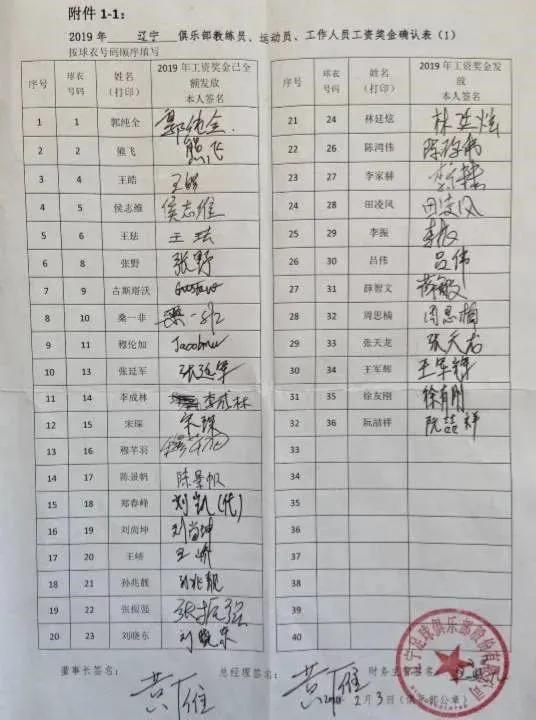 附件 1-1：
2019 年 辽宁 俱乐部教练员、运动员、工作人员工资奖金确认表（1）
按球衣号码顺序填写
序号 球衣号码 姓名（打印） 2019 年工资奖金已全额发放 本人签名
1 1 郭纯全 郭纯全
2 2 熊飞 熊飞
3 4 王皓 王皓
4 5 侯志维 侯志维
5 6 王珐 王珐
6 8 张野 张野
7 9 古斯塔沃 Gustavo
8 10 桑一非 桑一非
9 11 穆伦加
10 13 张延军 张延军
11 14 李成林 李成林
12 15 宋琛 宋琛
13 16 穆芊羽
14 17 陈景帆 陈景帆
15 18 郑春峰 刘凯(代)
16 19 刘尚坤 刘尚坤
17 20 王峤 王峤
18 21 孙兆靓 孙兆靓
19 22 张振强 张振强
20 23 刘晓东 刘晓东
序号 球衣号码 姓名（打印） 2019 年工资奖金发放 本人签名
21 24 林廷炫 林廷炫
22 26 陈鸿伟
23 27 李家赫
24 28 田凌风 田凌风
25 29 李振 李振
26 30 吕伟 吕伟
27 31 薛智文
28 32 周思楠 周思楠
29 33 张天龙 张天龙
30 34 王军辉 王军辉
31 35 徐友刚 徐有刚
32 36 阮喆祥 阮喆祥
33
34
35
36
37
38
39
40
董事长签名： 黄雁 总经理签名： 黄雁 财务主管签名：
2月3日（俱乐部公章）
宁足球俱乐部股份有限公司